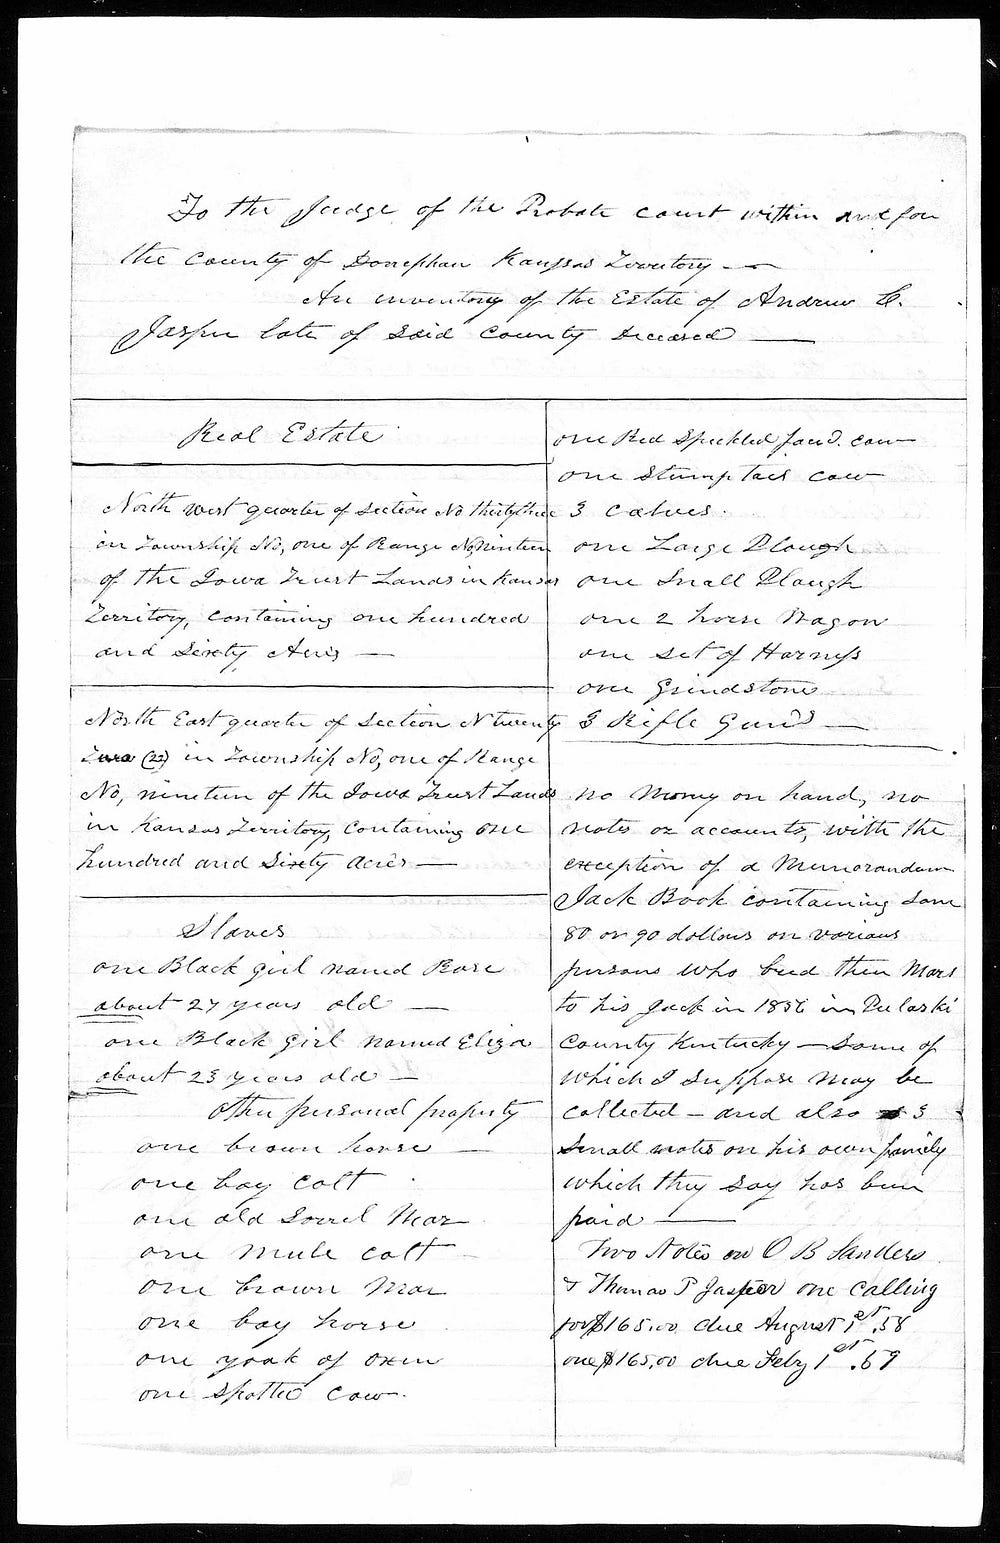 To the Judge of the Probate court within and for
the county of Donephan Kanssas Territory —
An inventory of the Estate of Andrew C.
Jasper late of said county deceased —
Real Estate
North west quarter of section No thirty three
in Township No, one of Range No, nineteen
of the Iowa Trust Lands in Kansas
Territory, containing one hundred
and Sixty Acres —
North East quarter of section N twenty
Two (22) in Township No, one of Range
No, nineteen of the Iowa Trust Lands
in Kansas Territory, containing one
hundred and Sixty acres —
Slaves
one Black girl named Rose
about 27 years old —
one Black girl named Eliza
about 23 years old —
Other personal property
one brown horse —
one bay colt
one old Sorrel Mar
one mule colt
one brown Mar
one bay horse
one yoak of oxen
one spotted cow.
one Red Speckled facd. cow
one Stump tail cow
3 calves.
one Large Plough
one Small Plough
one 2 horse Wagon
one set of Harness
one Grindstone
3 Rifle Guns —
no money on hand, no
notes or accounts, with the
exception of a Memorandum
Jack Book containing some
80 or 90 dollars on various
persons who bred their Mars
to his Jack in 1856 in Pulaski
County Kentucky — Some of
which I suppose may be
collected — and also 3
Small notes on his own family
which they say has been
paid —
Two Notes on O B Sanders
& Thomas P Jasper one calling
for $165.00 due August 1st .58
one $165.00 due Feby 1st .59